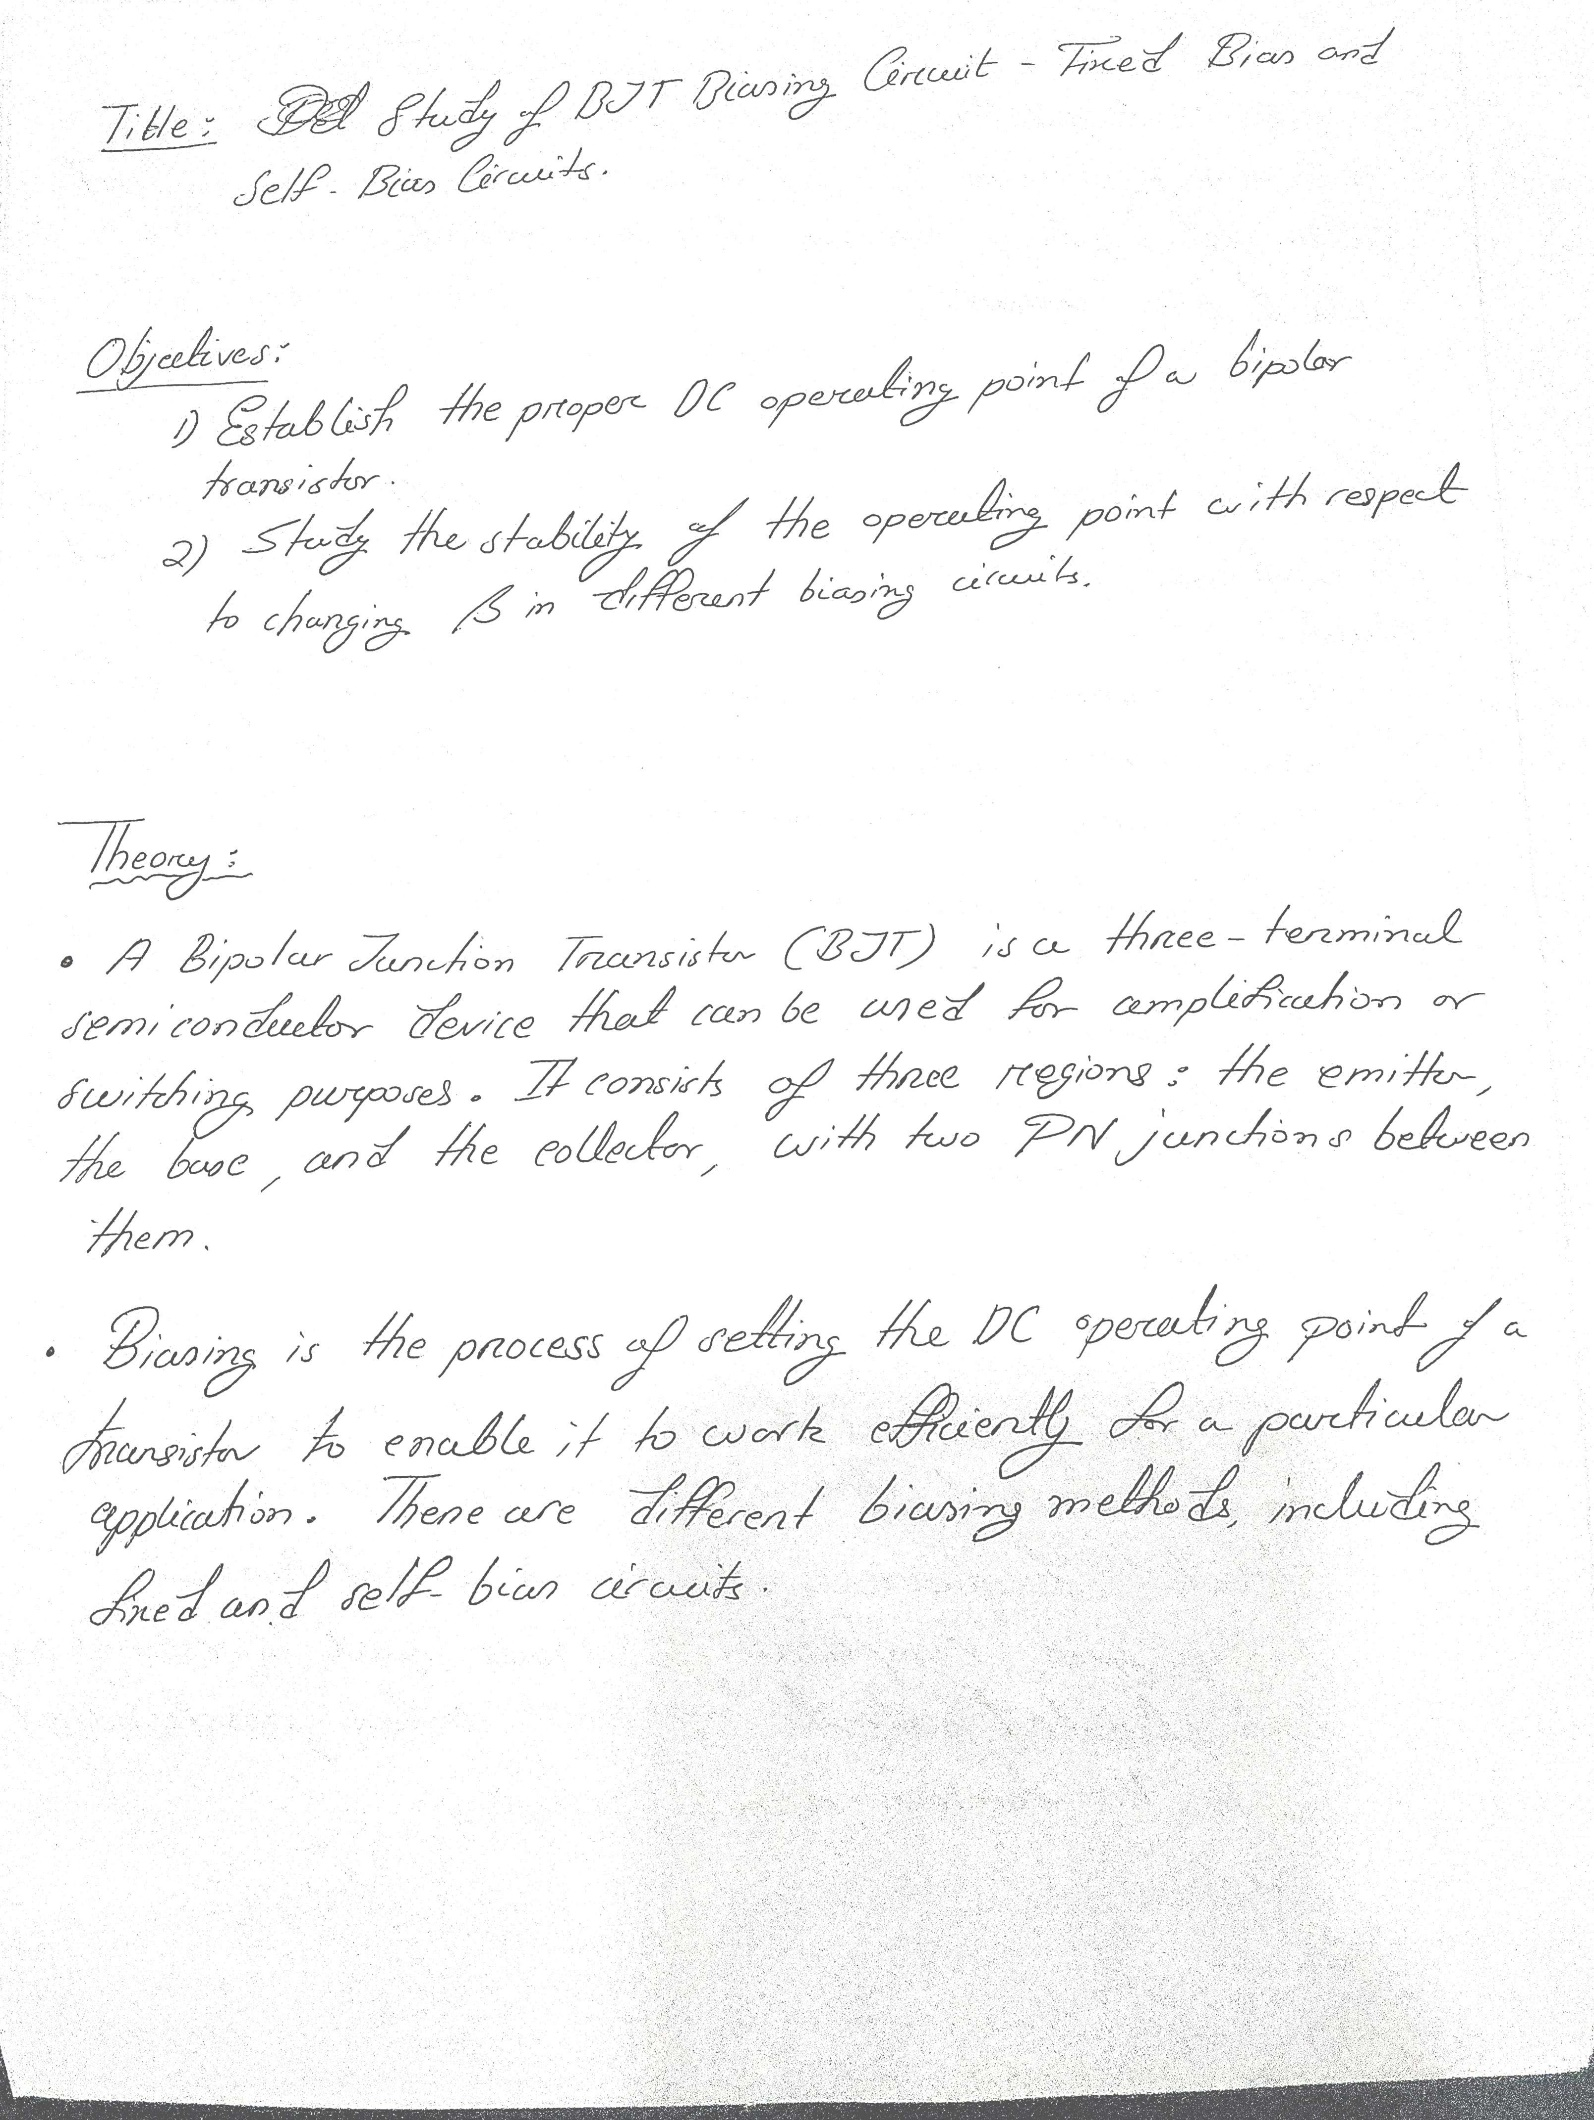 Title: Study of BJT Biasing Circuit - Fixed Bias and
Self-Bias Circuits.
Objectives:
1) Establish the proper DC operating point of a bipolar
transistor.
2) Study the stability of the operating point with respect
to changing β in different biasing circuits.
Theory:
• A Bipolar Junction Transistor (BJT) is a three-terminal
semiconductor device that can be used for amplification or
switching purposes. It consists of three regions: the emitter,
the base, and the collector, with two PN junctions between
them.
• Biasing is the process of setting the DC operating point of a
transistor to enable it to work efficiently for a particular
application. There are different biasing methods, including
fixed and self-bias circuits.